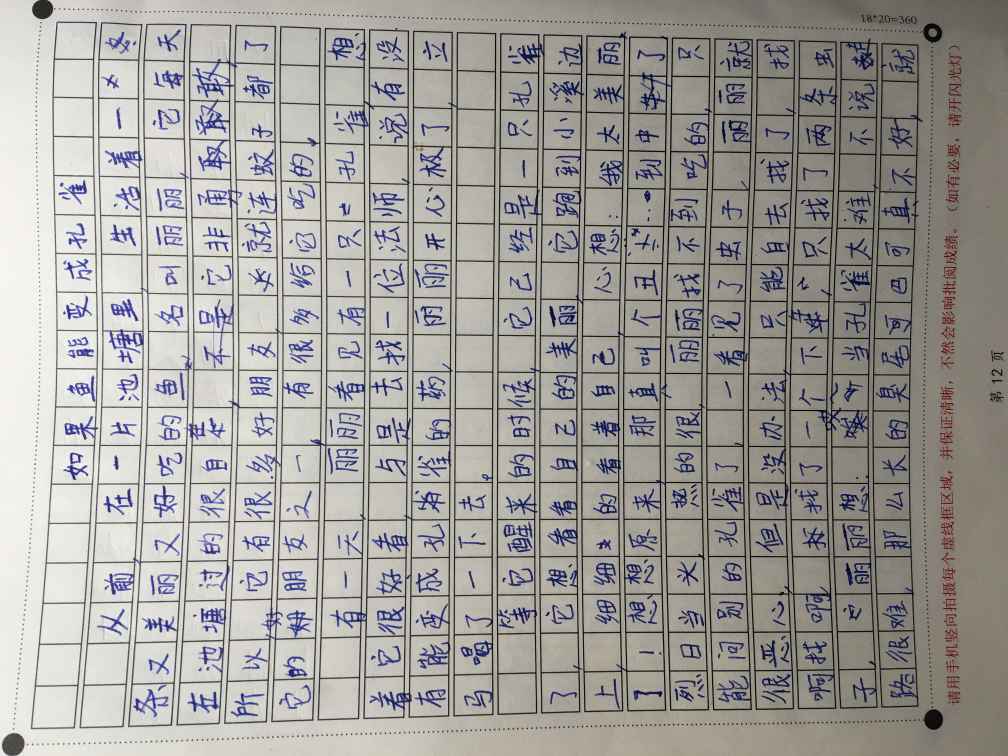 18*20=360
如果鱼能变成孔雀
从前，在一片池塘里，生活着一
条又美丽又好吃的鱼，名叫丽丽，它每天
在池塘过的很自在，不是它非勇敢
所以它有很多好朋友，多必就连蚊子都了
它的好朋友又一有很多给它吃的。
有一天，丽丽看见有一只孔雀，想
着它很好看，与是去找一位法师，说有没
有能变成孔雀的药，丽丽开心极了，立
马喝了一下去。
等它醒来的时候，它已经是一只孔雀
了，它想看看自己的美丽，它跑到小溪边
上，细细的看着自己，心想：我太美丽
了！想想原来，那真叫个丑，到中午了，
烈日当头，热的很，丽丽找不到吃的，只
能问别的孔雀了，一看见了虫子，丽丽就
很恶心，但是没办法，只能自去找了，找
啊找啊，找了一个下午，只找了两条虫
子，丽丽想：唉当孔雀太难不说
路很难，那么长的臭尾巴可真不好，就
请用手机竖向拍摄每个虚线框区域，并保证清晰，不然会影响批阅成绩。（如有必要，请开闪光灯）
第 12 页